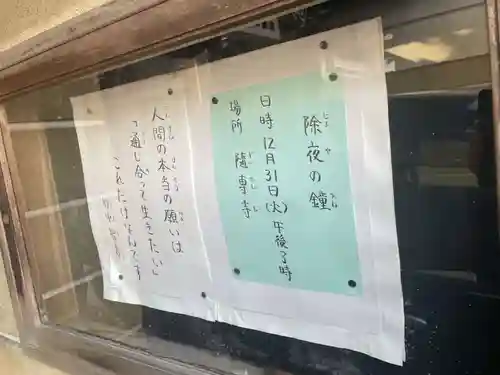 除夜の鐘
日時 12月31日(火)午後
場所 隨専寺
人間の本当の願いは
「通じ合って生きたい」
これだけなんです